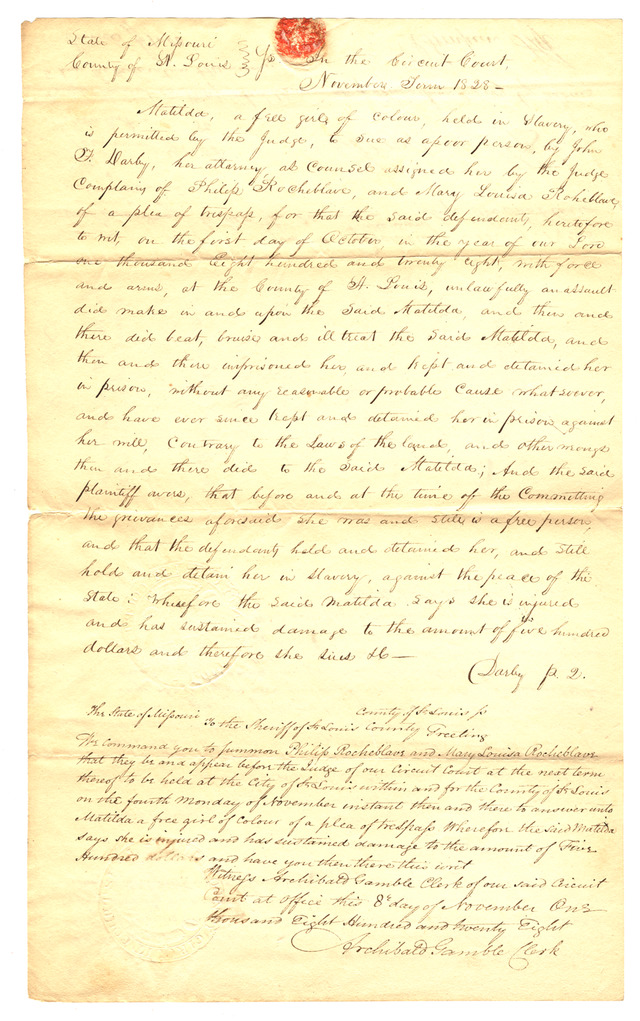 State of Missouri
County of St. Louis } Ss In the Circuit Court,
November Term 1828 —
Matilda, a free girl of colour, held in Slavery, who
is permitted by the Judge, to sue as a poor person, by John
F. Darby, her attorney as Counsel assigned her by the Judge
Complains of Philip Rocheblave, and Mary Louisa Rocheblave,
of a plea of trespass, for that the said defendants, heretofore
to wit, on the first day of October, in the year of our Lord
one thousand Eight hundred and twenty eight, with force
and arms, at the County of St. Louis, unlawfully an assault
did make in and upon the said Matilda, and then and
there did beat, bruise and ill treat the said Matilda, and
then and there imprisoned her, and kept and detained her
in prison, without any reasonable or probable Cause whatsoever,
and have ever since kept and detained her in prison against
her will, Contrary to the Laws of the land, and other wrongs
then and there did to the said Matilda; And the said
plaintiff avers, that before and at the time of the Committing
the grievances aforesaid she was and still is a free person,
and that the defendants held and detained her, and still
hold and detain her in slavery, against the peace of the
State: Wherefore the said Matilda says she is injured
and has sustained damage to the amount of five hundred
dollars and therefore she sues &c —
Darby p. q.
The State of Missouri County of St Louis ss
To the Sheriff of St Louis County Greeting
We command you to summon Philip Rocheblave and Mary Louisa Rocheblave
that they be and appear before the Judge of our Circuit Court at the next term
thereof to be held at the City of St Louis within and for the County of St Louis
on the fourth Monday of November instant then and there to answer unto
Matilda a free girl of colour of a plea of trespass Wherefore the said Matilda
says she is injured and has sustained damage to the amount of Five
Hundred dollars and have you then there this writ
Witness Archibald Gamble Clerk of our said Circuit
Court at office this 8th day of November One
thousand Eight Hundred and twenty Eight
Archibald Gamble Clerk